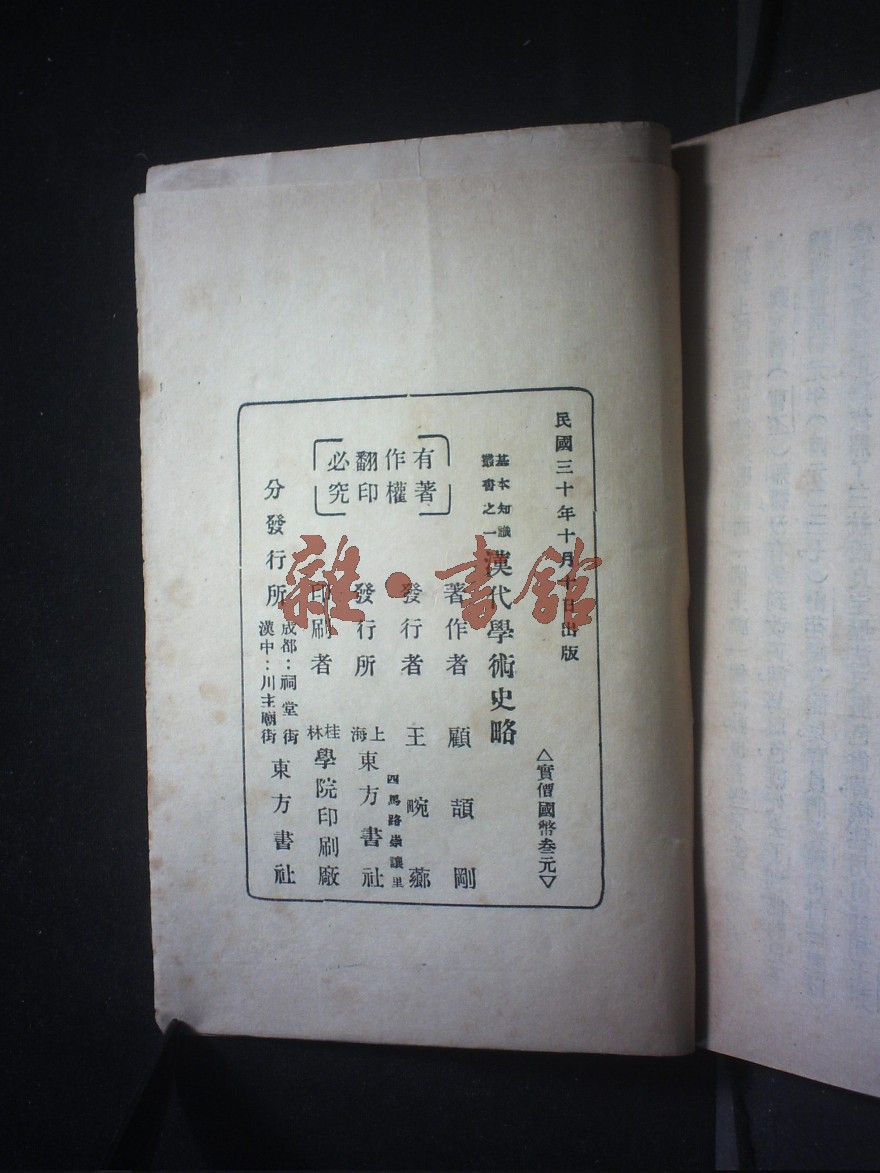 民國三十年十月十日出版
△實價國幣叁元▽
基本知識
叢書之一
漢代學術史略
著作者 顧頡剛
發行者 王畹薌
四馬路崇讓里
發行所 上海東方書社
印刷者 桂林學院印刷廠
分發行所 成都：祠堂街
漢中：川主廟街
東方書社
有著
作權
翻印
必究
雜·書館